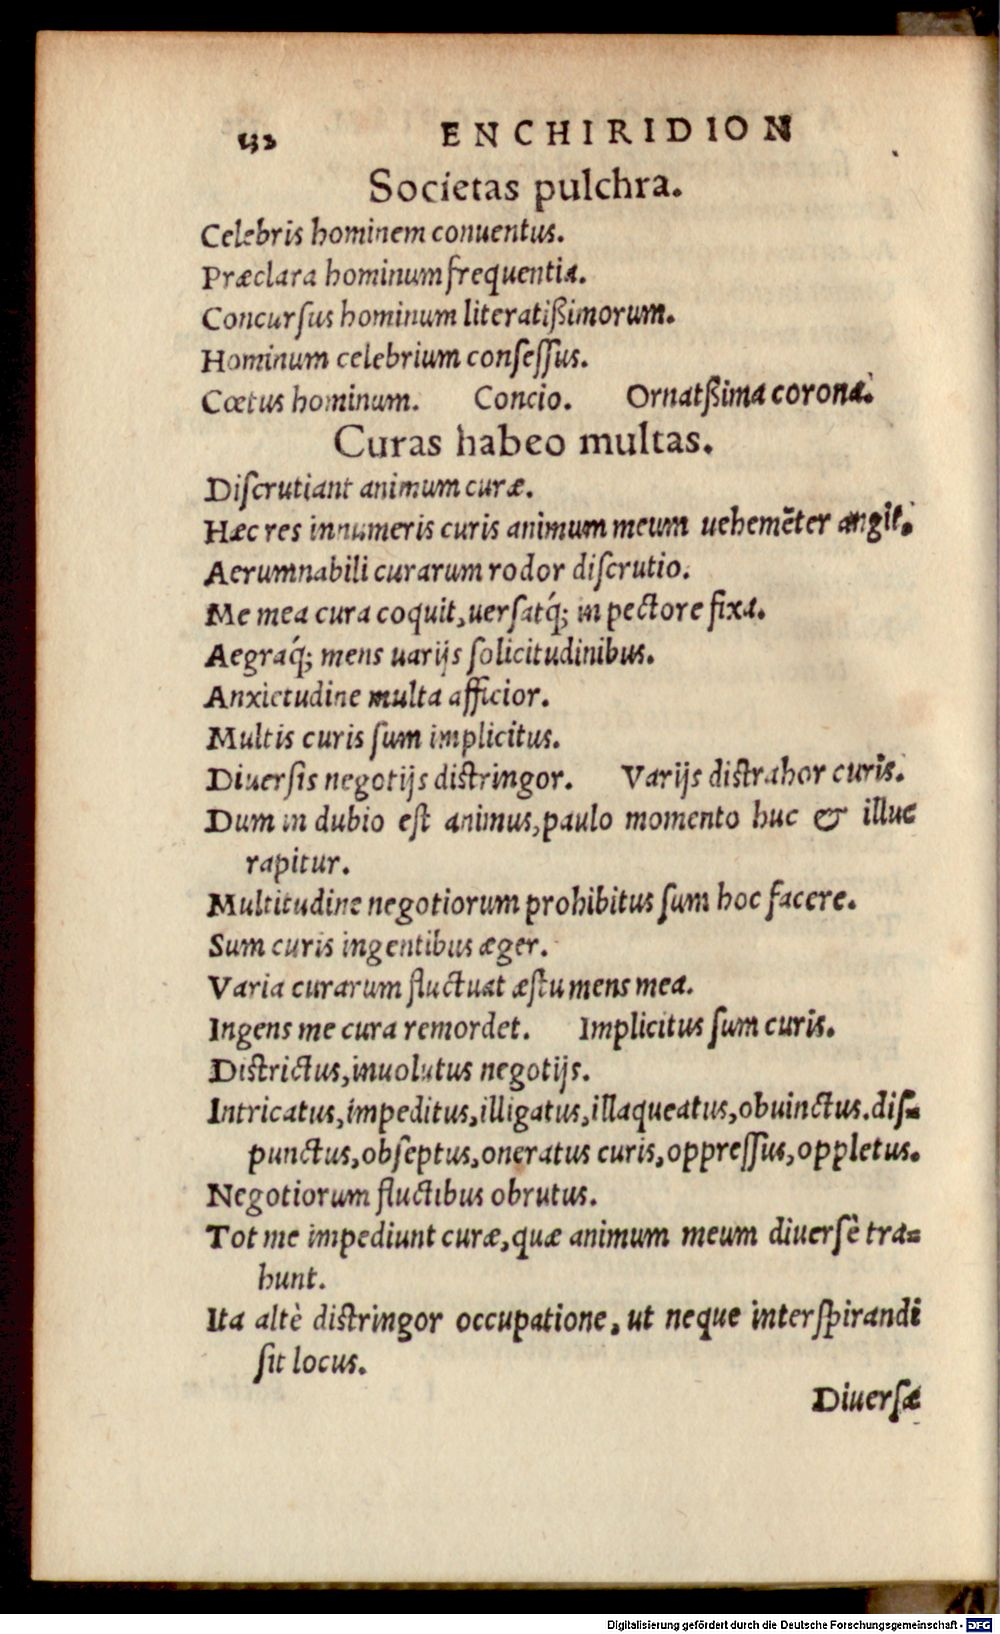 132 ENCHIRIDION
Societas pulchra.
Celebris hominem conuentus.
Præclara hominum frequentia.
Concursus hominum literatißimorum.
Hominum celebrium conseſſus.
Cœtus hominum. Concio. Ornatßima corona.
Curas habeo multas.
Diſcrutiant animum curæ.
Hæc res innumeris curis animum meum uehemẽter angit.
Aerumnabili curarum rodor diſcrutio.
Me mea cura coquit, uerſatq́; in pectore fixa.
Aegraq́; mens uarijs ſolicitudinibus.
Anxietudine multa afficior.
Multis curis ſum implicitus.
Diuerſis negotijs diſtringor. Varijs diſtrahor curis.
Dum in dubio eſt animus, paulo momento huc & illuc
rapitur.
Multitudine negotiorum prohibitus ſum hoc facere.
Sum curis ingentibus æger.
Varia curarum fluctuat æſtu mens mea.
Ingens me cura remordet. Implicitus ſum curis.
Diſtrictus, inuolutus negotijs.
Intricatus, impeditus, illigatus, illaqueatus, obuinctus. diſ-
punctus, obſeptus, oneratus curis, oppreſſus, oppletus.
Negotiorum fluctibus obrutus.
Tot me impediunt curæ, quæ animum meum diuerſè tra-
hunt.
Ita altè diſtringor occupatione, ut neque interſpirandi
ſit locus.
Diuerſæ
Digitalisierung gefördert durch die Deutsche Forschungsgemeinschaft - DFG